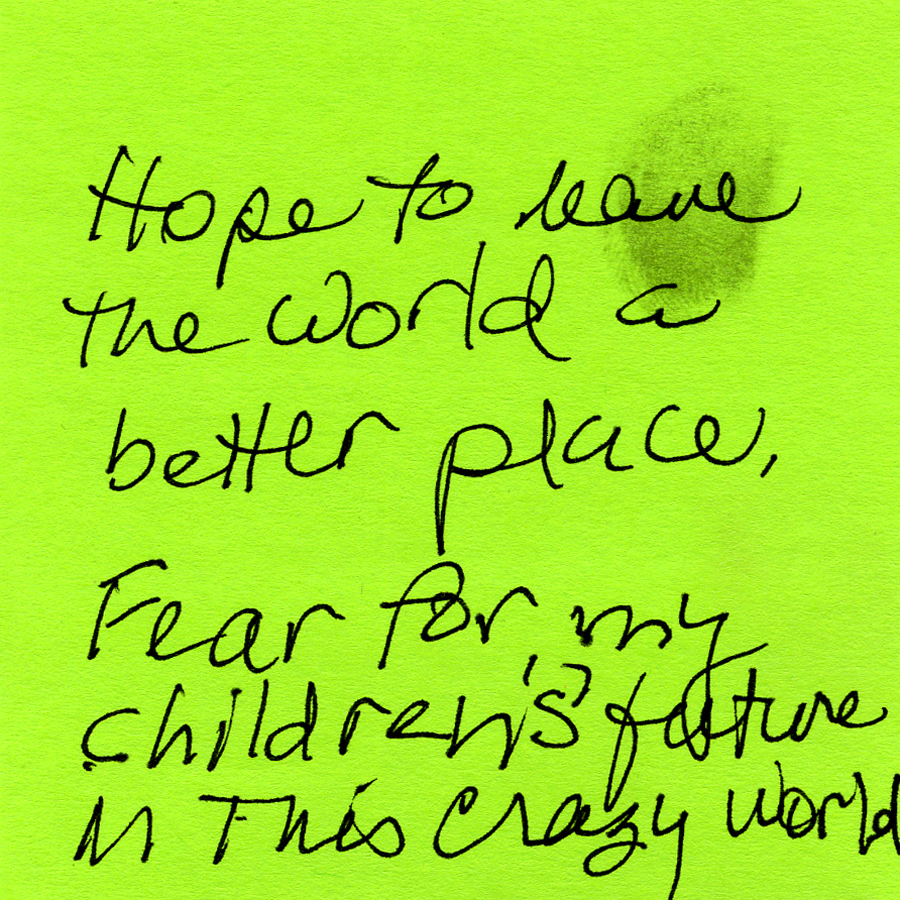 Hope to leave
the world a
better place,
Fear for my
children's future
in This Crazy world